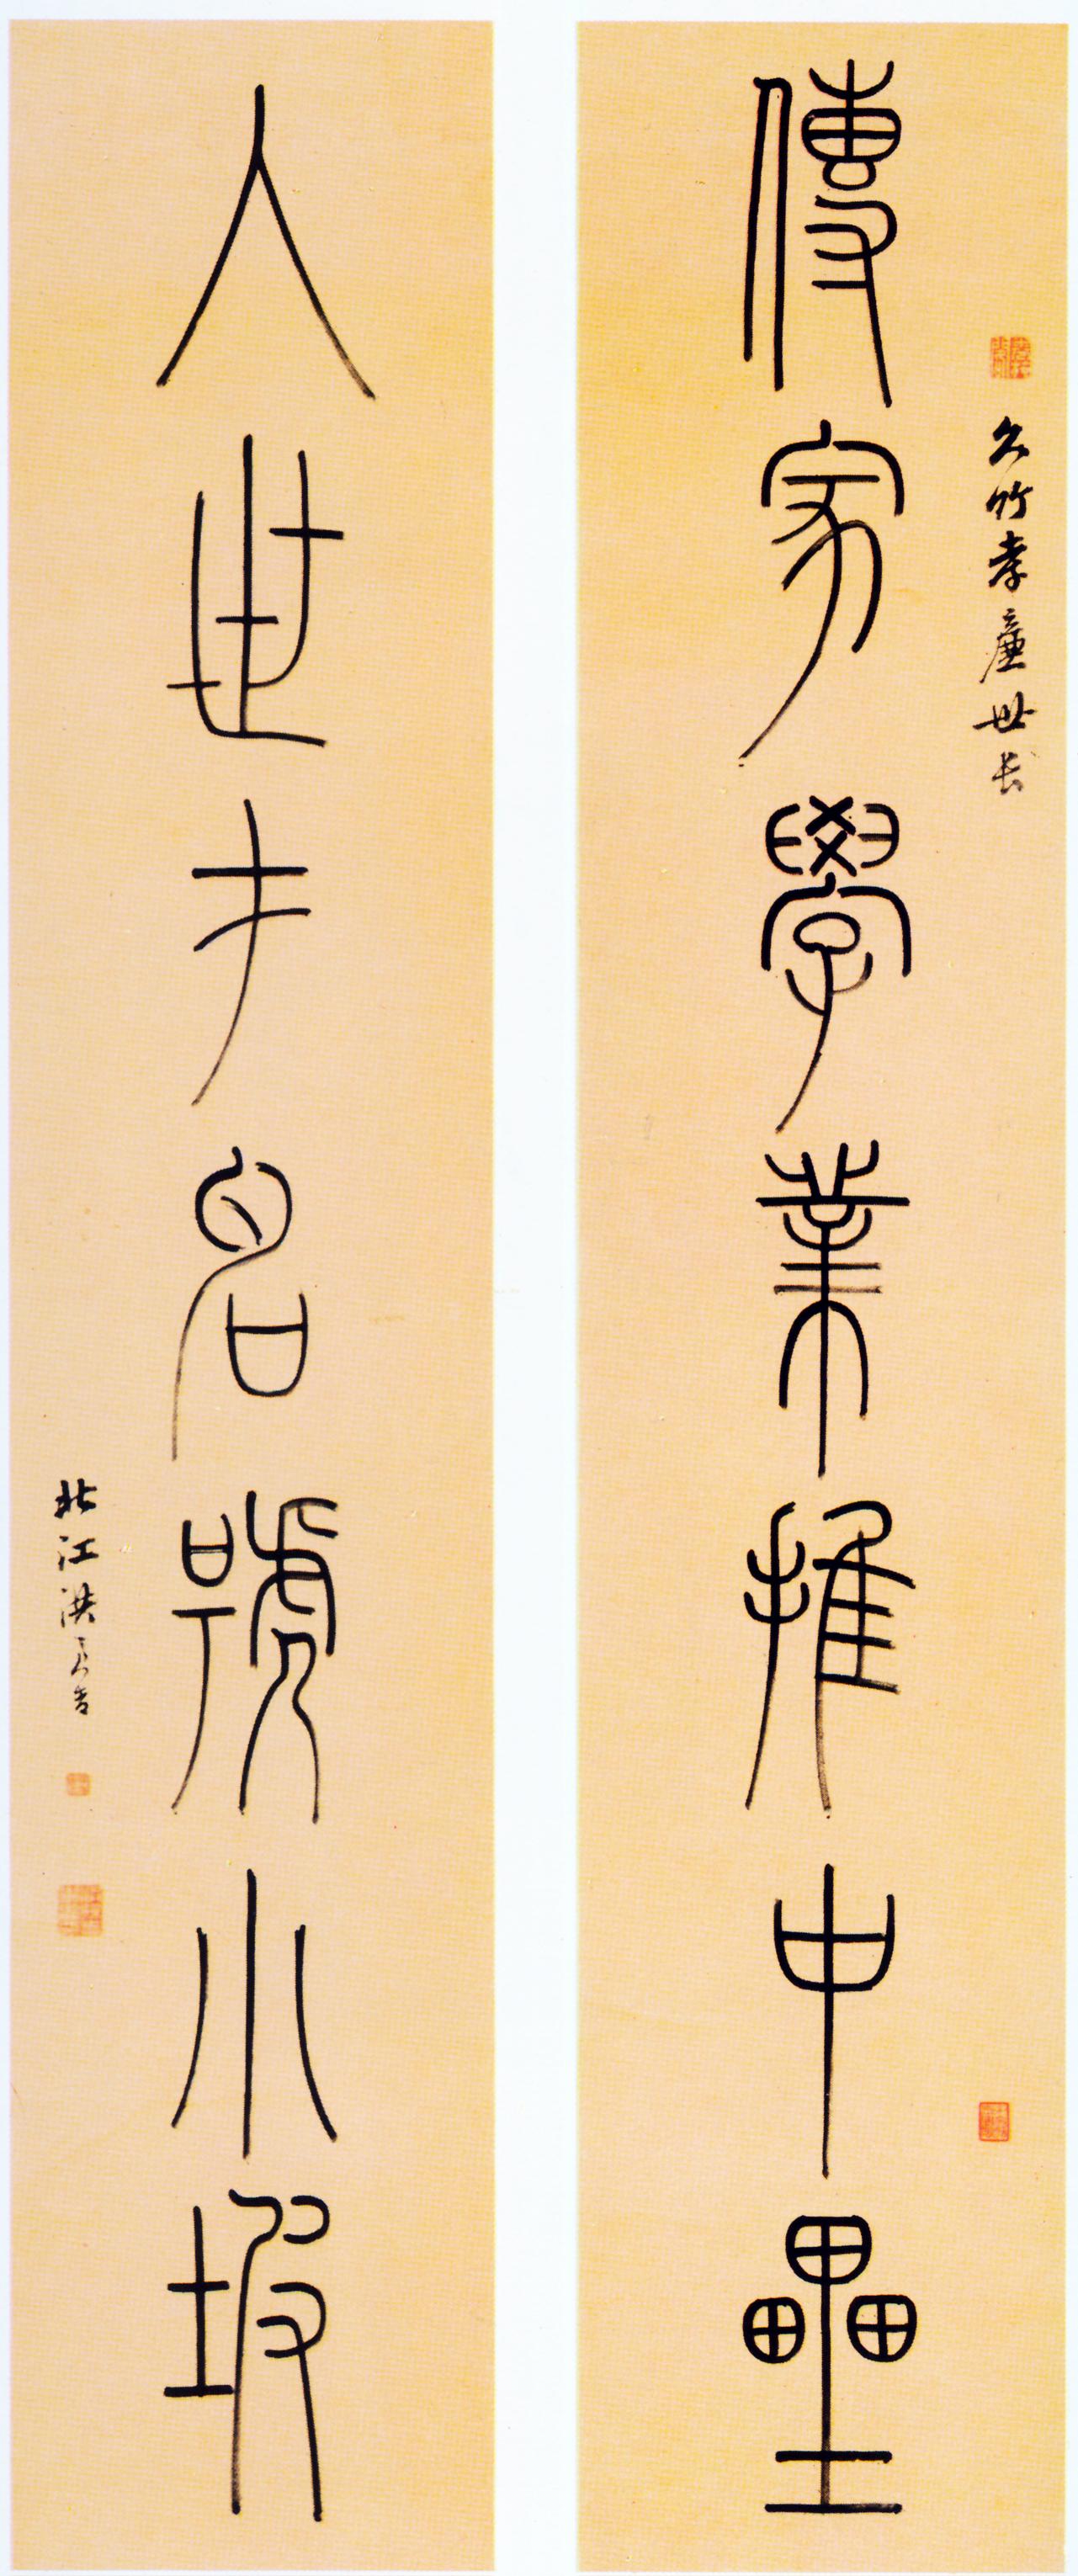 久竹孝廉世长
傳家學業推中壘
入世才名號小坡
北江洪亮吉